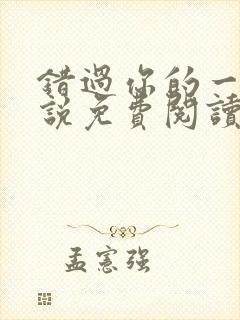 錯過你的一
說免費閱讀
孟憲強